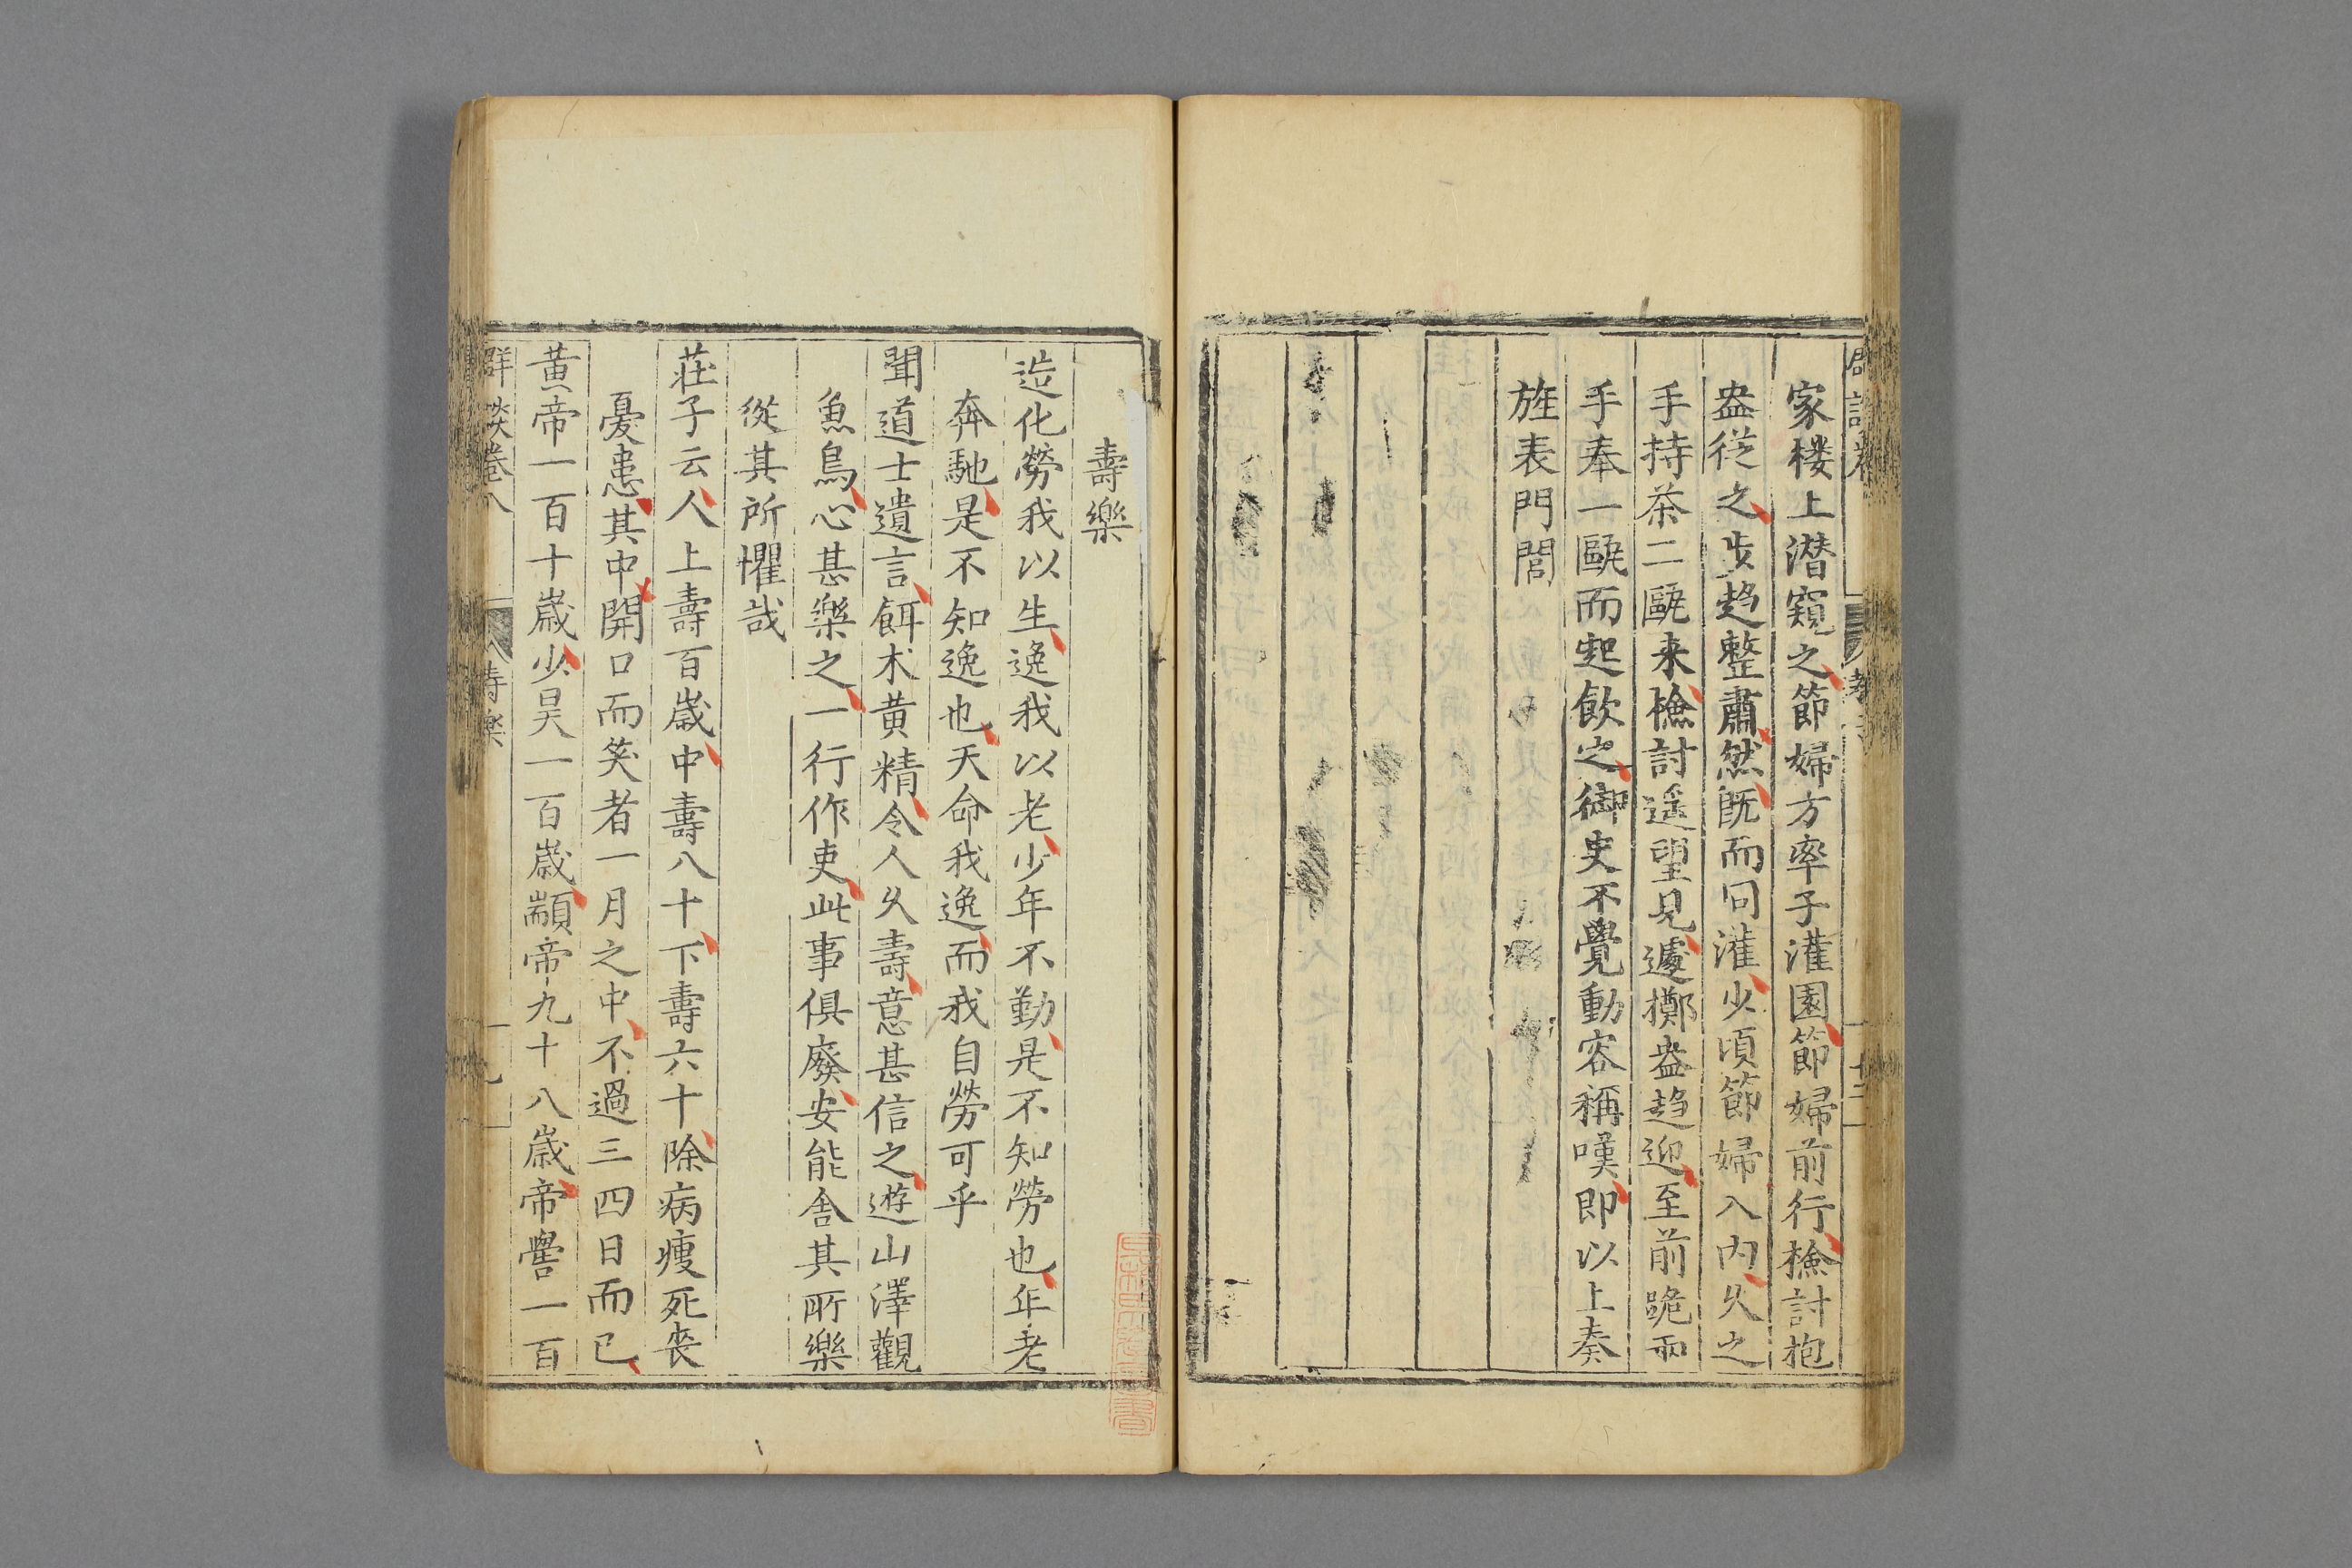 家楼上潜窺之節婦方率子灌園節婦前行檢討抱
盎従之步趋整肅然旣而同灌少頃節婦入内久之
手持茶二甌来檢討遥望見遽擲盎趋迎至前跪兩
手奉一甌而起飲之御史不覺動容稱嘆即以上奏
旌表門閭
壽樂
造化勞我以生逸我以老少年不勤是不知勞也年老
奔馳是不知逸也天命我逸而我自勞可乎
聞道士遺言餌朮黄精令人久壽意甚信之遊山澤觀
魚鳥心甚樂之一行作吏此事俱廢安能舍其所樂
從其所懼哉
莊子云人上壽百歲中壽八十下壽六十除病瘦死丧
憂患其中開口而笑者一月之中不過三四日而已
黄帝一百十歲少昊一百歲顓帝九十八歲帝嚳一百
群談卷八
壽樂